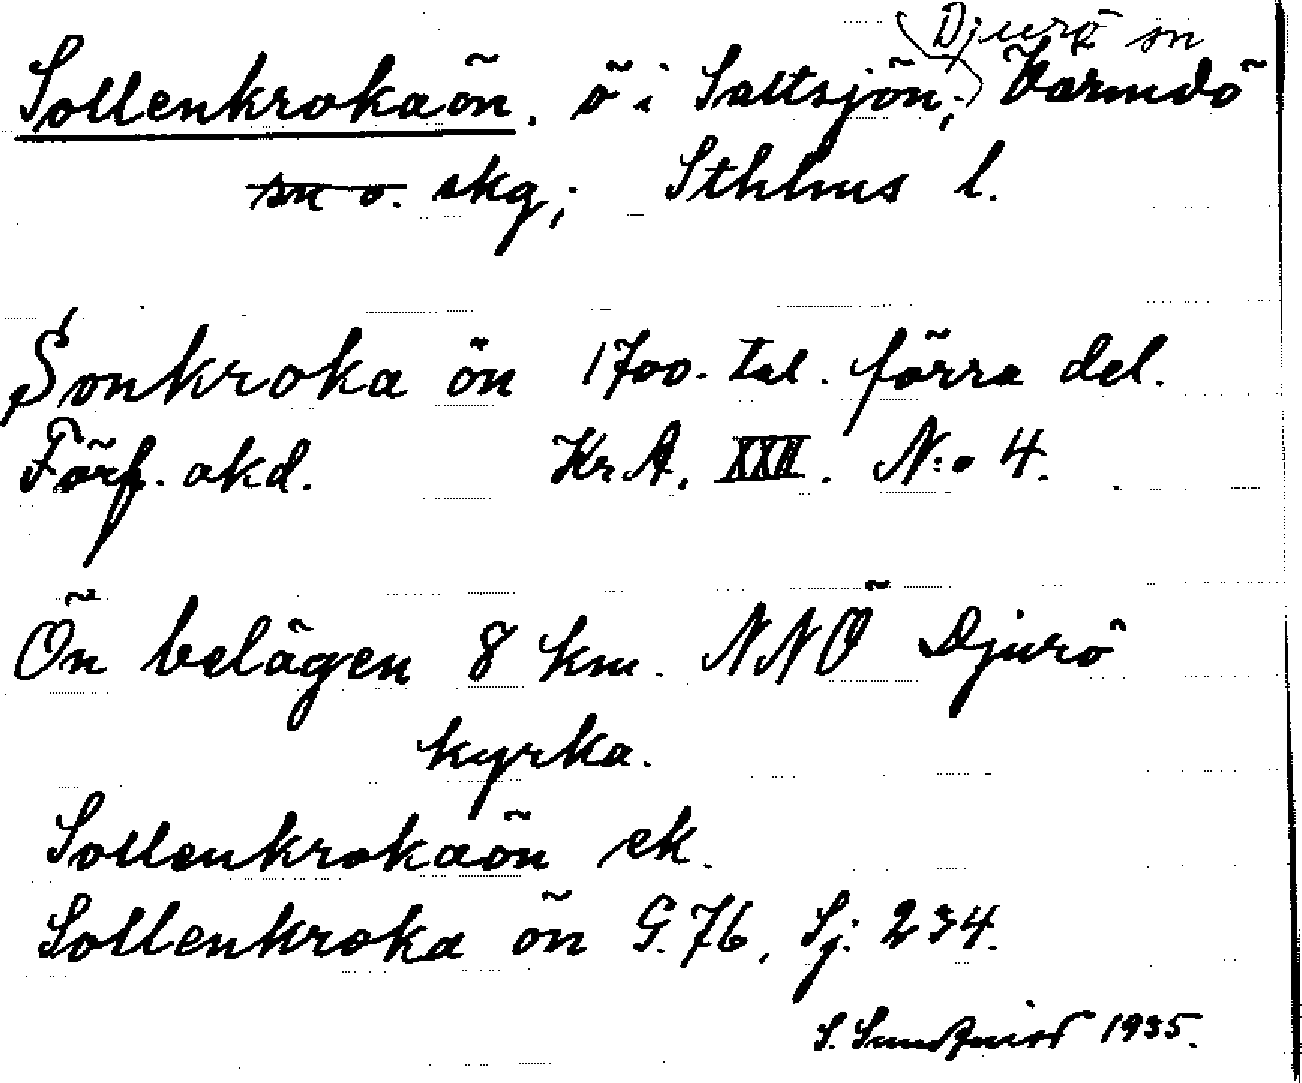 Djurö sn
Sollenkrokaön. ö i Saltsjön, Värmdö
sn o. skg; Sthlms l.
Sonkroka ön 1700-tal. förra del.
Förf. okd. Kr.A. XXII. N:o 4.
Ön belägen 8 km. NNÖ Djurö
kyrka.
Sollenkrokaön ek.
Sollenkroka ön G. 76, Sj. 234.
S. Sundqvist 1935.